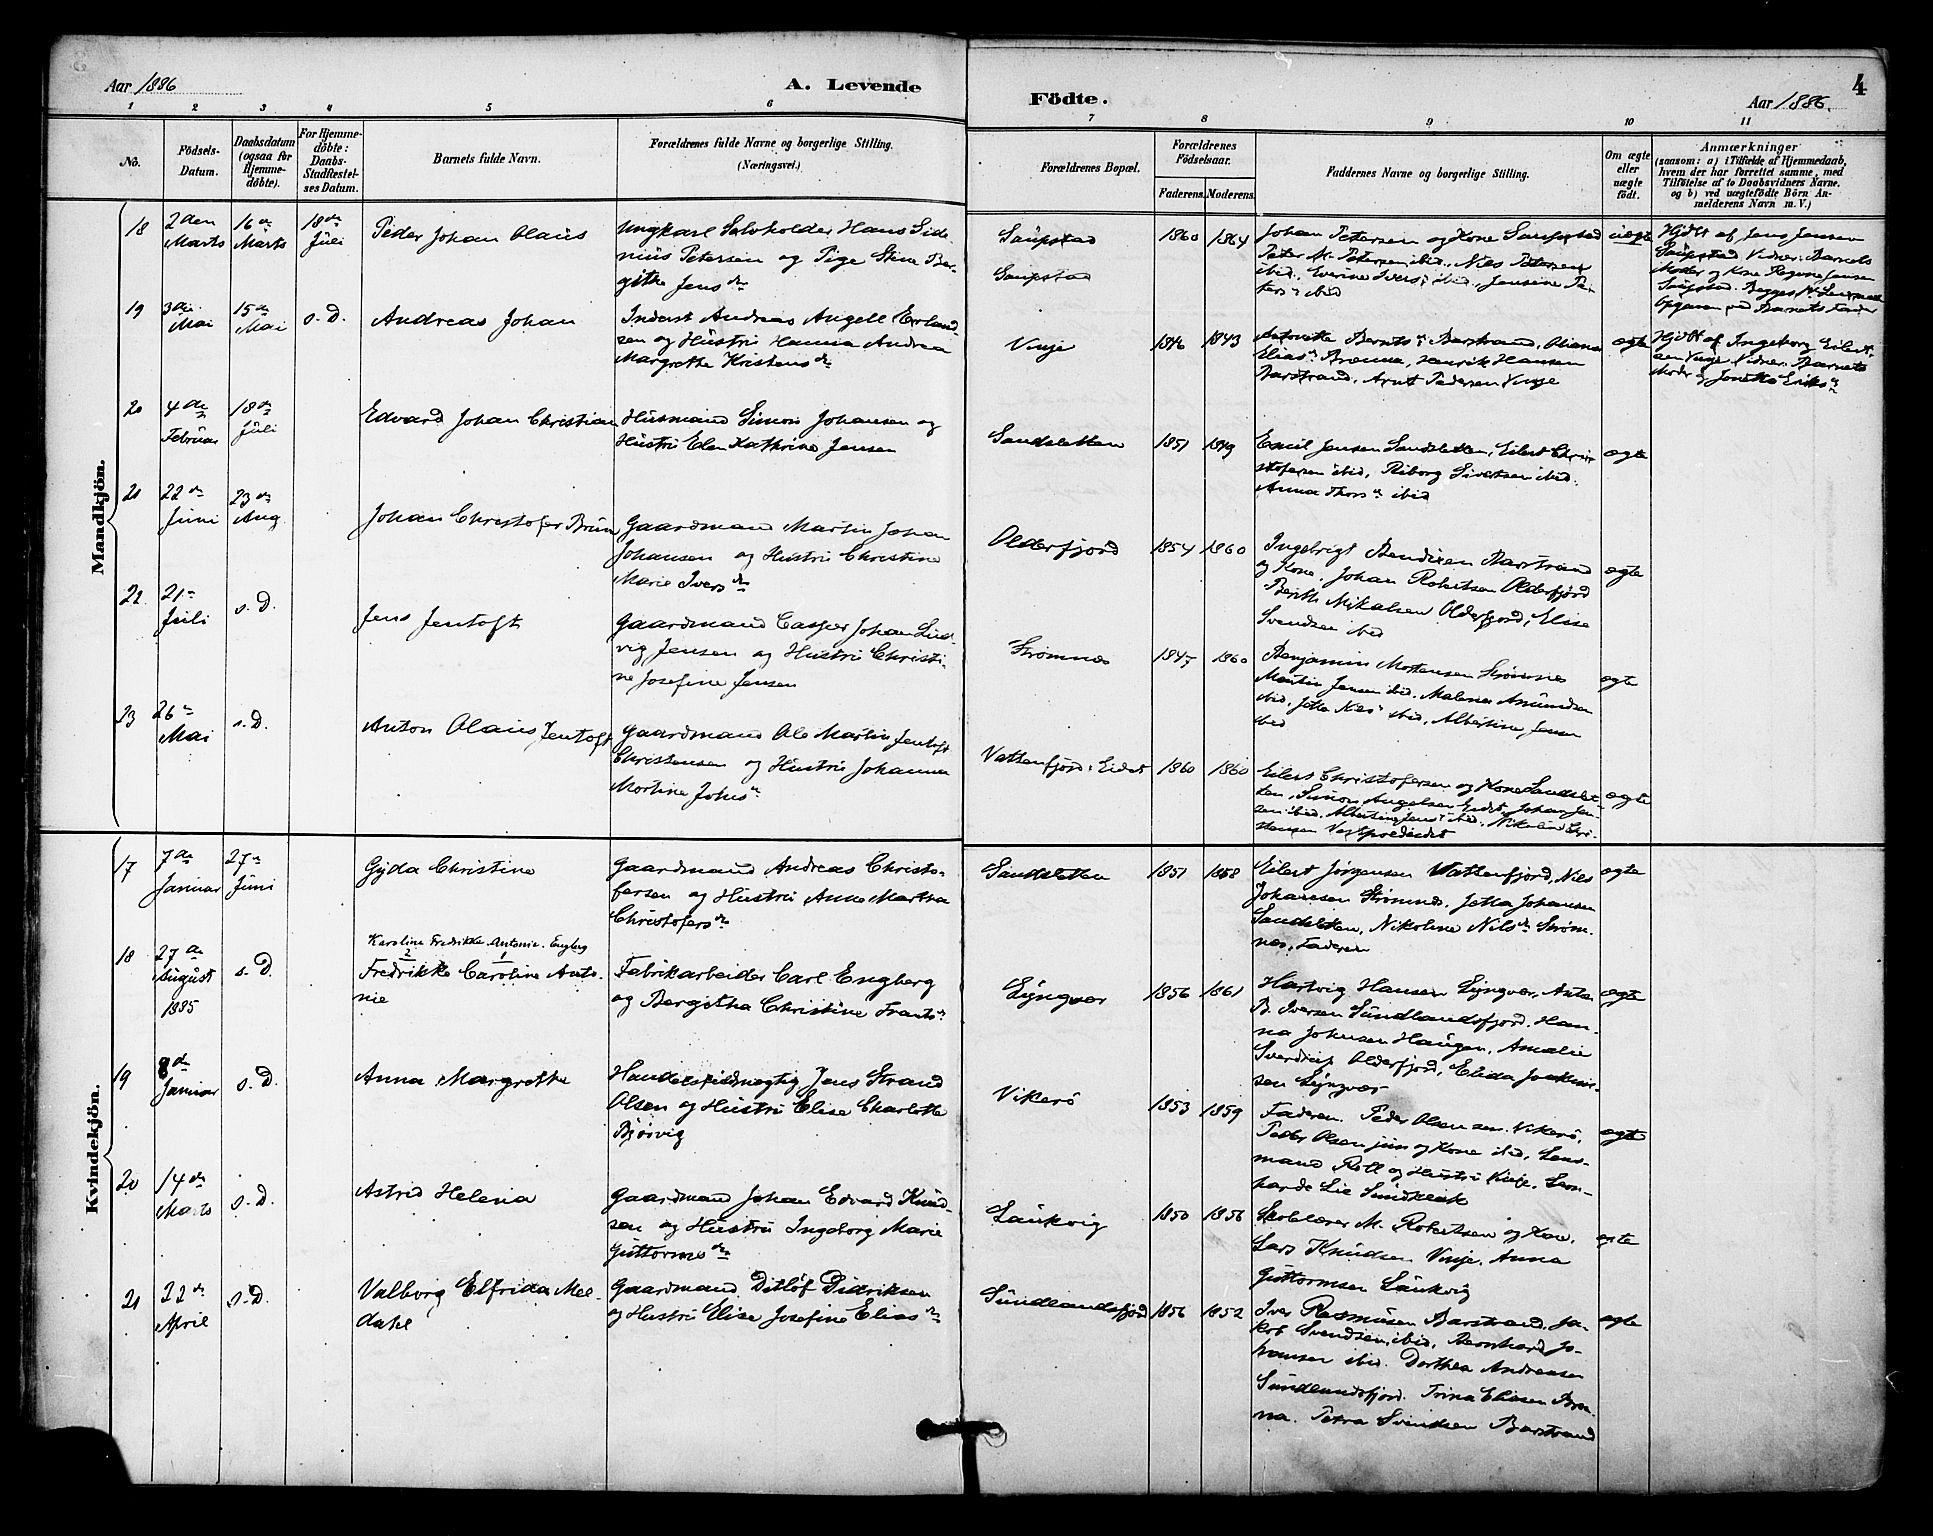 Aar 1886
A. Levende
Födte.
4
Aar 1886.
1 2 3 4 5 6 7 8 9 10 11
No.
Födsels-
Datum.
Daabsdatum
(ogsaa for
Hjemme-
döbte).
For Hjemme-
döbte:
Daabs-
Stadfæstel-
ses Datum.
Barnets fulde Navn.
Forældrenes fulde Navne og borgerlige Stilling.
(Næringsvei.)
Forældrenes Bopæl.
Forældrenes
Födselsaar.
Faderens. Moderens.
Faddernes Navne og borgerlige Stilling.
Om ægte
eller
uægte
födt.
Anmærkninger
(saasom: a) i Tilfælde af Hjemmedaab,
hvem der har forrettet samme, med
Tilföielse af to Daabsvidners Navne.
og b) ved uægtefödte Börn An-
melderens Navn m. V.)
Mandkjön.
18
2den
Marts
16de
Marts
18de
Juli
Peder Johan Olaus
Ungkarl Selvholder Hans Side-
nius Petersen og Pige Stine Ber-
githe Jensdr
Saupstad
Saupstad
1860 1864
Johan Petersen og Kone Saupstad
Peter M. Petersen ibid., Nils Petersen
ibid., Jensine Pe-
ters ibid
uægte
Hjdbt af Jens Jensen
Saupstad Vidner: Barnets
Moder og Kone Regine Jensen
Saupstad.
Opgaven ved Barnets Fader
19
3die
Mai
15de
Mai
s. D.
Andreas Johan
Inderst Andreas Angell Erland-
sen og Hustru Hanna Andrea
Margrethe Kristensdr
Vinje
1846 1843
Barstrand, Oliana
Elias Brenna, Henrik Hansen
Barstrand, Arnt Pedersen Vinje
ægte
Hjdbt af Ingeborg Eilert-
sen Vinje Vidner: Barnets
Moder og
20
4de
Februar
18de
Juli
Edvard Johan Christian
Husmand Simon Johansen og
Hustru Elen Kathrine Jensen
Sandsletten
1851 1849
Emil Jensen Sandsletten, Eilert Chri-
stofersen ibid, Riborg Sivertsen ibid.
Anna Thors ibid
ægte
21
22de
Juni
23de
Aug
Johan Christofer Brun
Gaardmand Martin Johan
Johansen og Hustru Christine
Marie Iversdr
Olderfjord
1854 1860
Ingebrigt Bendixen Barstrand
og Kone, Johan Robertsen Olderfjord
Berith Mikalsen Olderfjord, Elise
Svendsen ibid
ægte
22
21de
Juli
s. D.
Jens Jentoft
Gaardmand Casper Johan Lud-
vig Jensen og Hustru Christi-
ne Josefine Jensen
Strømnes
1847 1860
Benjamin Mortensen Strømnes
Martin Jensen ibid. Malene Amundsen
ibid, Jetta Nils ibid, Albertine Jensen
ibid
ægte
23
26de
Mai
s. D.
Anton Olaus Jentoft
Gaardmand Ole Martin Jentoft
Christensen og Hustru Johanna
Martine Johs
Vatterfjord: Eidet
1860 1860
Eilert Christofersen og Kone Sandslet-
ten, Simon Angelsen Eidet, Johan Jen-
sen ibid, Albertine Jens ibid, Nikolai Kri-
stensen
ægte
Kvindekjön.
17
7de
Januar
27de
Juni
Gyda Christine
Gaardmand Andreas Christo-
fersen og Hustru Anne Martha
Christofersdr
Sandsletten
1851 1858
Eilert Jørgensen Vatterfjord, Nils
Johansen Strømnes, Jetta Johansen
Sandsletten, Nikoline Nilsdr Strøm-
nes, Faderen
ægte
18
27de
August
1885
s. D.
Karoline Fredrikke Antonie Engberg
2 1
Fredrikke Caroline Anto-
nie
Fabrikarbeider Carl Engberg
og Bergitha Christine Frants
Lyngvær
1856 1861
Hartvig Hansen Lyngvær, Anton
B. Iversen Sundlandsfjord, Han-
na Johnsen Haugen, Amalie
Sverdrup Olderfjord, Elida Joakim-
sen Lyngvær
ægte
19
8de
Januar
s. D.
Anna Margrethe
Handelsfuldmægtig Jens Strand
Olsen og Hustru Elise Charlotte
Bjørvig
Vikerø
1853 1859
Faderen. Peder Olsen sen. Vikerø,
Peder Olsen jun og Kone ibid, Lens-
mand Roll og Hustru Vinje, Leon-
harde Lie Sundklak
ægte
20
14de
Marts
s. D.
Astrid Helena
Gaardmand Johan Edvard Knud-
sen og Hustru Ingeborg Marie
Guttormsdr
Laukvig
1850 1856
Skolelærer M. Robertsen og Kone,
Lars Knudsen Vinje, Anna
Guttormsen Laukvig
ægte
21
22de
April
s. D.
Valborg Elfrida Mel-
dahl
Gaardmand Ditløf Didriksen
og Hustru Elise Josefine Eliasdr
Sundlandsfjord
1856 1852
Iver Rasmusen Barstrand, Ja-
kob Svendsen ibid, Bernhard Jo-
hansen ibid. Dorthea Andreasen
Sundlandsfjord. Trina Eliasen Bren-
na. Petra Svendsen Barstrand
ægte